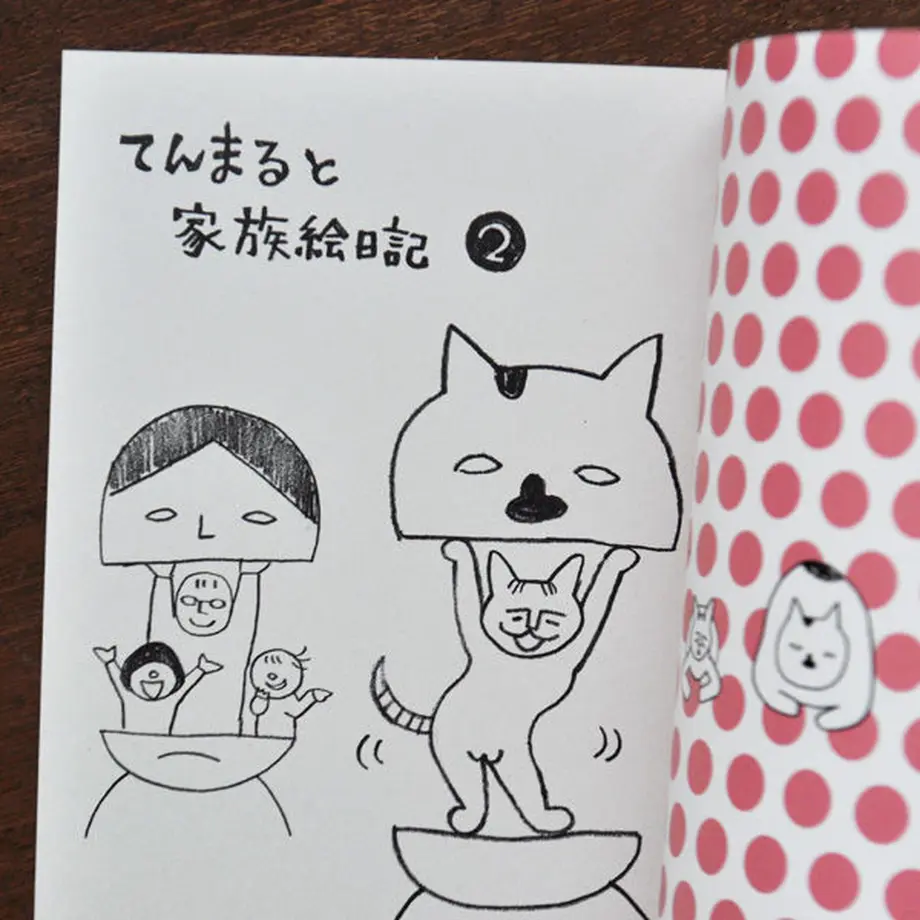 てんまると
家族絵日記 ❷